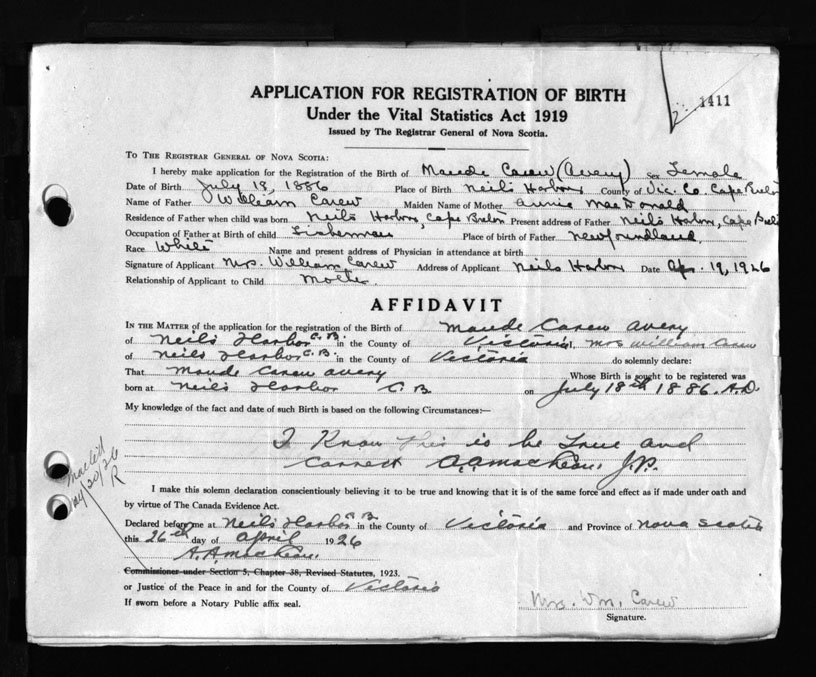 1411
APPLICATION FOR REGISTRATION OF BIRTH
Under the Vital Statistics Act 1919
Issued by The Registrar General of Nova Scotia.
TO THE REGISTRAR GENERAL OF NOVA SCOTIA:
I hereby make application for the Registration of the Birth of Maude Carew (Avery) Sex Female
Date of Birth July 18, 1886 Place of Birth Neils Harbor County of Vic. Co. Cape Breton
Name of Father William Carew Maiden Name of Mother Annie MacDonald
Residence of Father when child was born Neils Harbor, Cape Breton Present address of Father Neils Harbor, Cape Breton
Occupation of Father at Birth of child Fisherman Place of birth of Father Newfoundland.
Race White Name and present address of Physician in attendance at birth
Signature of Applicant Mrs. William Carew Address of Applicant Neils Harbor Date Ap. 19, 1926
Relationship of Applicant to Child Mother
AFFIDAVIT
IN THE MATTER of the application for the registration of the Birth of Maude Carew Avery
of Neil's Harbor C.B. in the County of Victoria I, Mrs William Carew
of Neil's Harbor C.B. in the County of Victoria do solemnly declare:
That Maude Carew Avery Whose Birth is sought to be registered was
born at Neil's Harbor C.B on July 18th 1886. A.D.
My knowledge of the fact and date of such Birth is based on the following Circumstances:—
I Know this is be True and
Correct A.A. MacKean, J.P.
Mailed
30/26
R
I make this solemn declaration conscientiously believing it to be true and knowing that it is of the same force and effect as if made under oath and
by virtue of The Canada Evidence Act.
Declared before me at Neil's Harbor C.B in the County of Victoria and Province of Nova Scotia
this 26th day of April 1926
A.A. MacKean.
Commissioner under Section 5, Chapter 38, Revised Statutes, 1923.
or Justice of the Peace in and for the County of Victoria
If sworn before a Notary Public affix seal.
Mrs. Wm. Carew
Signature.